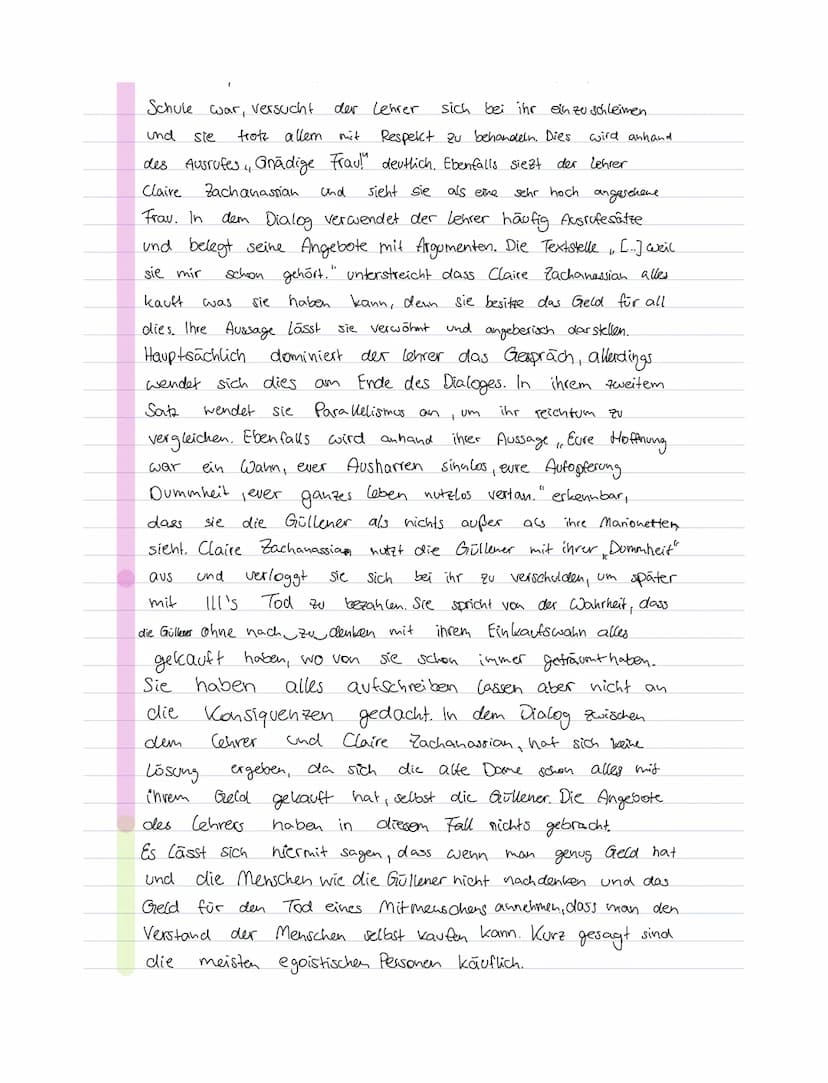 Schule war, versucht der Lehrer sich bei ihr einzuschleimen
und sie trotz allem mit Respekt zu behandeln. Dies wird anhand
des Ausrufes „Gnädige Frau!" deutlich. Ebenfalls siezt der Lehrer
Claire Zachanassian und sieht sie als eine sehr hoch angesehene
Frau. In dem Dialog verwendet der Lehrer häufig Ausrufesätze
und belegt seine Angebote mit Argumenten. Die Textstelle „[...] weil
sie mir schon gehört." unterstreicht dass Claire Zachanassian alles
kauft was sie haben kann, denn sie besitze das Geld für all
dies. Ihre Aussage lässt sie verwöhnt und angeberisch darstellen.
Hauptsächlich dominiert der Lehrer das Gespräch, allerdings
wendet sich dies am Ende des Dialoges. In ihrem zweitem
Satz wendet sie Parallelismus an, um ihr reichtum zu
vergleichen. Ebenfalls wird anhand ihrer Aussage „Eure Hoffnung
war ein Wahn, euer Ausharren sinnlos, eure Aufopferung
Dummheit, euer ganzes Leben nutzlos vertan." erkennbar,
dass sie die Güllener als nichts außer als ihre Marionetten
sieht. Claire Zachanassian nutzt die Güllener mit ihrer „Dummheit"
aus und verloggt sie sich bei ihr zu verschulden, um später
mit Ill's Tod zu bezahlen. Sie spricht von der Wahrheit, dass
die Güllener ohne nach zu denken mit ihrem Einkaufswahn alles
gekauft haben, wo von sie schon immer geträumt haben.
Sie haben alles aufschreiben lassen aber nicht an
die Konsiquenzen gedacht. In dem Dialog zwischen
dem Lehrer und Claire Zachanassian, hat sich keine
Lösung ergeben, da sich die alte Dame schon alles mit
ihrem Geld gekauft hat, selbst die Güllener. Die Angebote
des Lehrers haben in diesem Fall nichts gebracht.
Es lässt sich hiermit sagen, dass wenn man genug Geld hat
und die Menschen wie die Güllener nicht nachdenken und das
Geld für den Tod eines Mitmenschens annehmen, dass man den
Verstand der Menschen selbst kaufen kann. Kurz gesagt sind
die meisten egoistischen Personen käuflich.